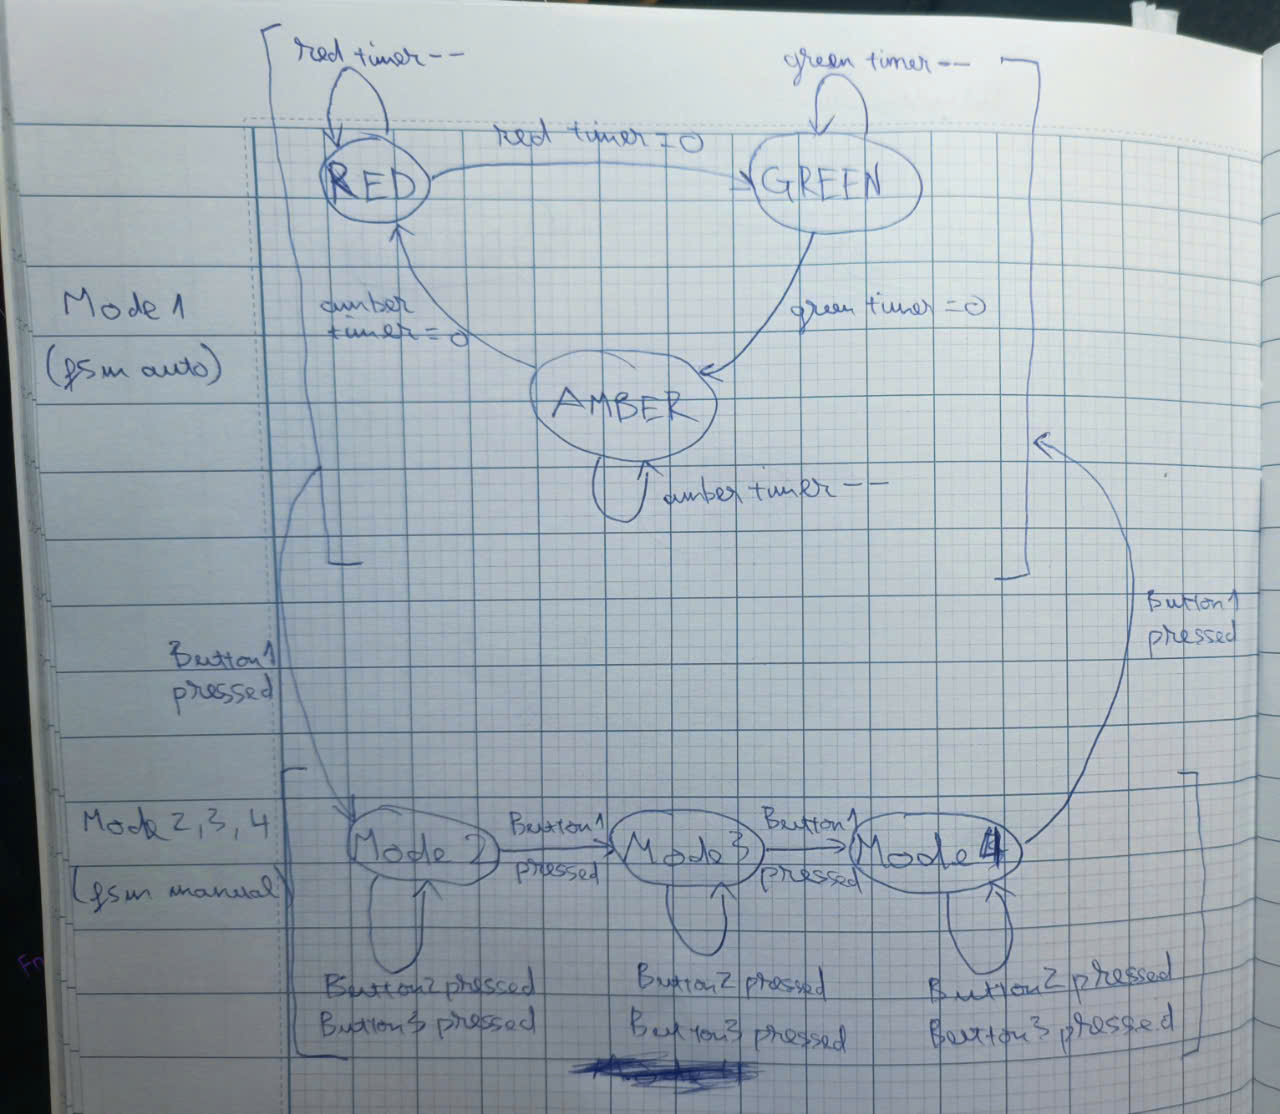 red timer--
green timer--
red timer=0
RED
GREEN
Mode 1
(fsm auto)
amber
timer=0
green timer=0
AMBER
amber timer--
Button1
pressed
Button1
pressed
Mode 2,3,4
(fsm manual)
Mode 2
Button1
pressed
Mode 3
Button1
pressed
Mode 4
Button2 pressed
Button3 pressed
Button2 pressed
Button3 pressed
Button2 pressed
Button3 pressed